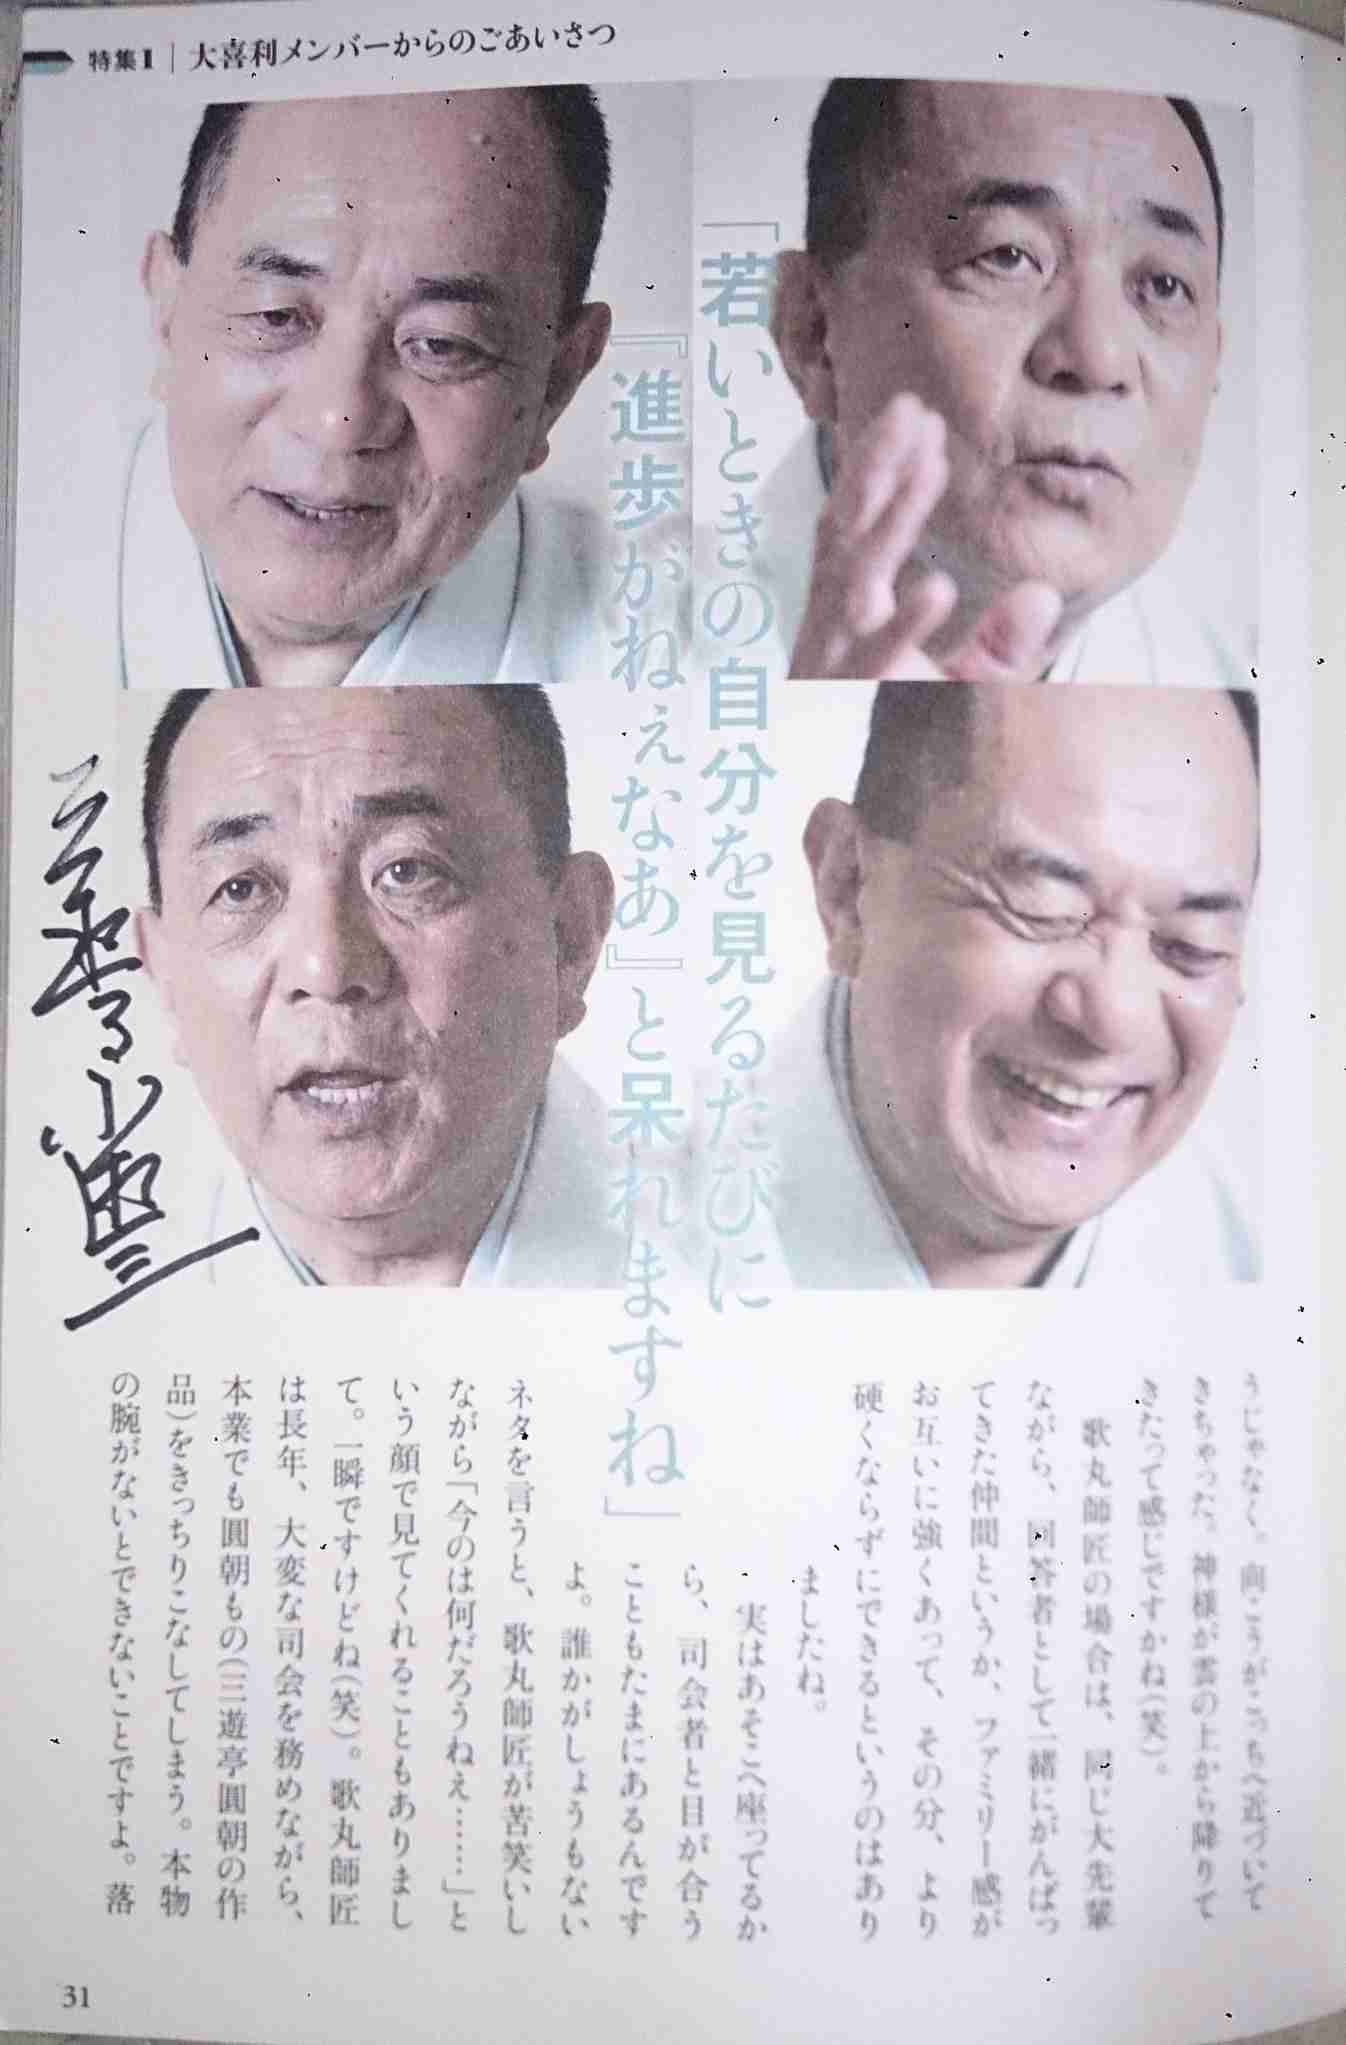 特集1｜大喜利メンバーからのごあいさつ
「若いときの自分を見るたびに
『進歩がねぇなあ』と呆れますね」
うじゃなく。向こうがこっちへ近づいて
きちゃった。神様が雲の上から降りて
きたって感じですかね(笑)。
歌丸師匠の場合は、同じ大先輩
ながら、回答者として一緒にがんばっ
てきた仲間というか、ファミリー感が
お互いに強くあって、その分、より
硬くならずにできるというのはあり
ましたね。
実はあそこへ座ってるか
ら、司会者と目が合う
こともたまにあるんです
よ。誰かがしょうもない
ネタを言うと、歌丸師匠が苦笑いし
ながら「今のは何だろうねぇ……」と
いう顔で見てくれることもありまし
て。一瞬ですけどね(笑)。歌丸師匠
は長年、大変な司会を務めながら、
本業でも圓朝もの(三遊亭圓朝の作
品)をきっちりこなしてしまう。本物
の腕がないとできないことですよ。落
31